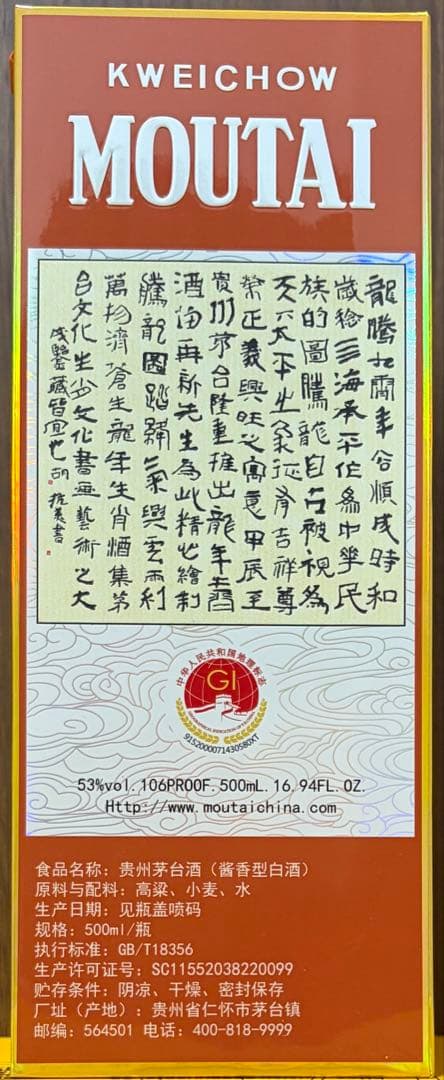 KWEICHOW
MOUTAI
龍騰九霄年谷順成時和
歲稔亖海承平作為中華民
族的圖騰龍自古被視為
天下太平之象征有吉祥尊
榮正義興旺之寓意甲辰至
貴州茅台隆重推出龍年生肖
酒再新先生為此精心繪制
騰龍圖踏氣興雲雨利
萬物濟蒼生龍年生肖酒集茅
台文化生肖文化書畫藝術之大
成鑒藏皆宜也 胡抗美書
中华人民共和国地理标志
GI
GEOGRAPHICAL INDICATION OF P.R.CHINA
91520000714305807XT
53%vol.106PROOF.500mL.16.94FL.OZ.
Http://www.moutaichina.com
食品名称：贵州茅台酒（酱香型白酒）
原料与配料：高粱、小麦、水
生产日期：见瓶盖喷码
规格：500ml/瓶
执行标准：GB/T18356
生产许可证号：SC11552038220099
贮存条件：阴凉、干燥、密封保存
厂址（产地）：贵州省仁怀市茅台镇
邮编：564501 电话：400-818-9999